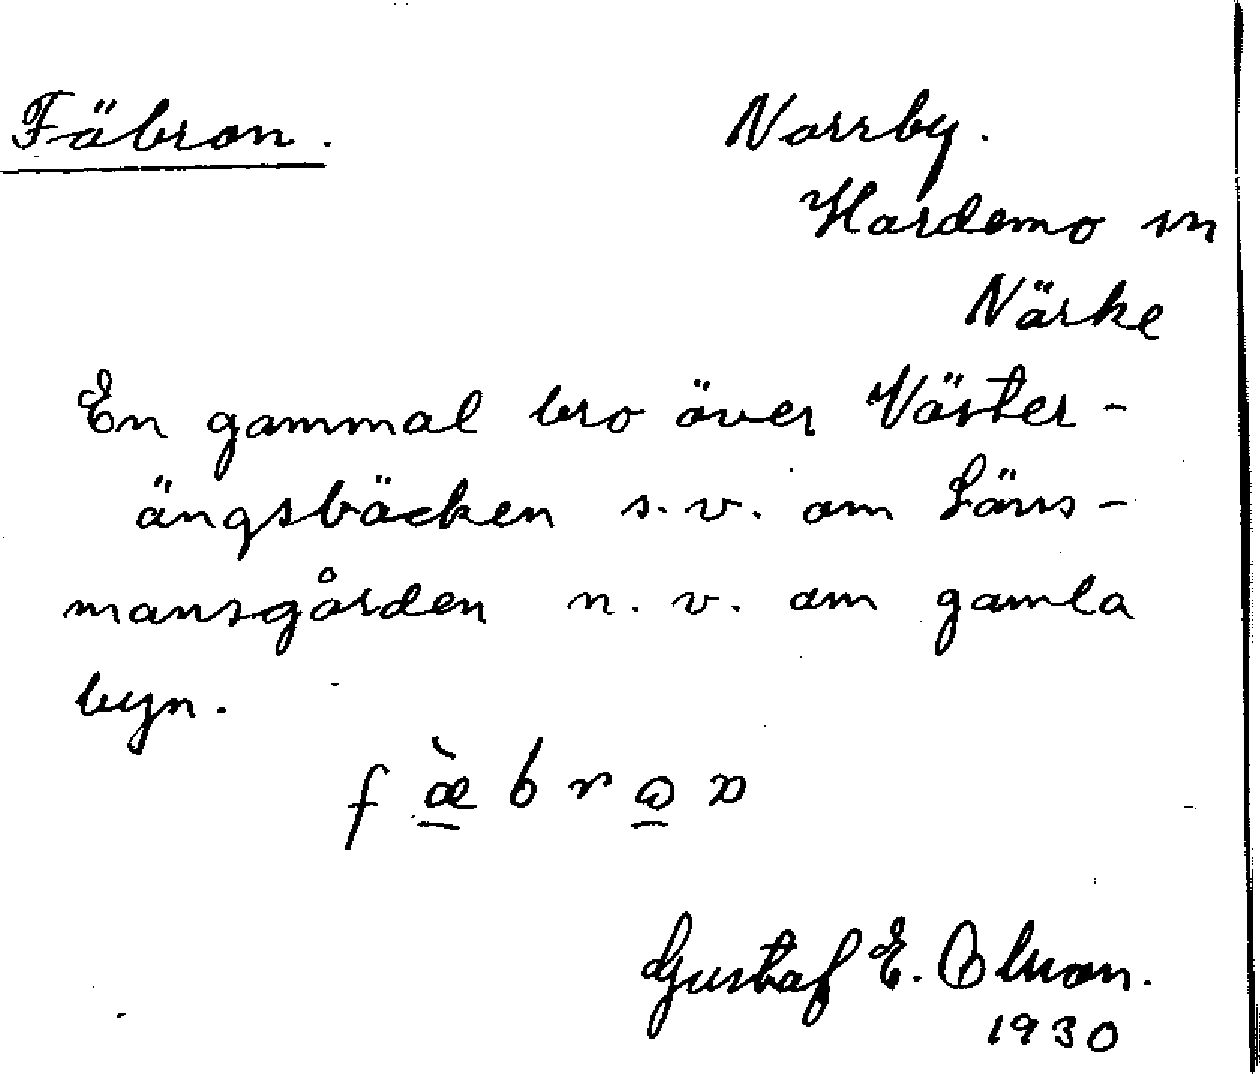 Fäbron. Norrby.
Hardemo sn
Närke
En gammal bro över Väster-
ängsbäcken s.v. om Läns-
mansgården n.v. om gamla
byn.
Gustaf E. Olsson.
1930